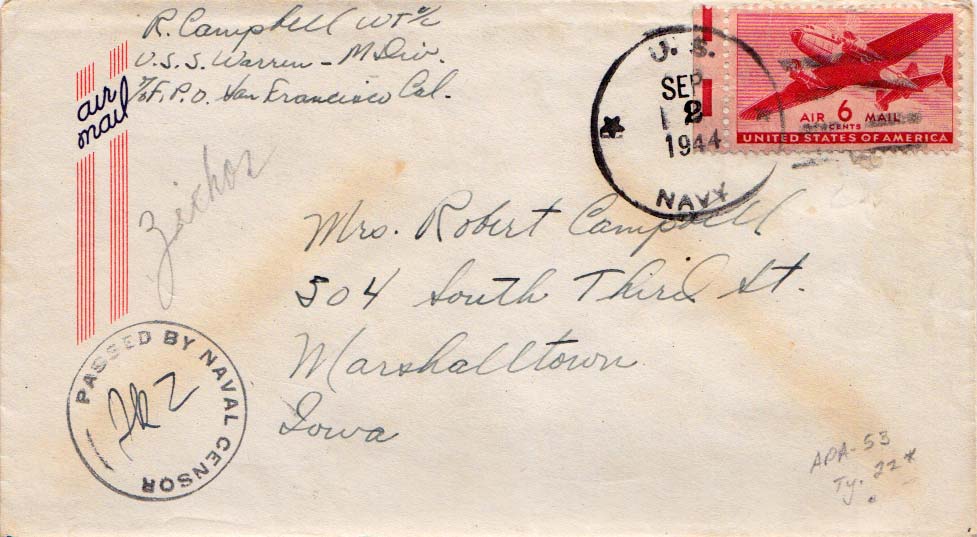 R. Campbell WT 2/c
U.S.S. Warren - M Div.
℅ F.P.O. San Francisco Cal.
air
mail
U. S.
SEP
12
1944
NAVY
AIR 6 MAIL
CENTS
UNITED STATES OF AMERICA
Mrs. Robert Campbell
504 South Third St.
Marshalltown
Iowa
PASSED BY NAVAL CENSOR
APA-53
Ty. 22*